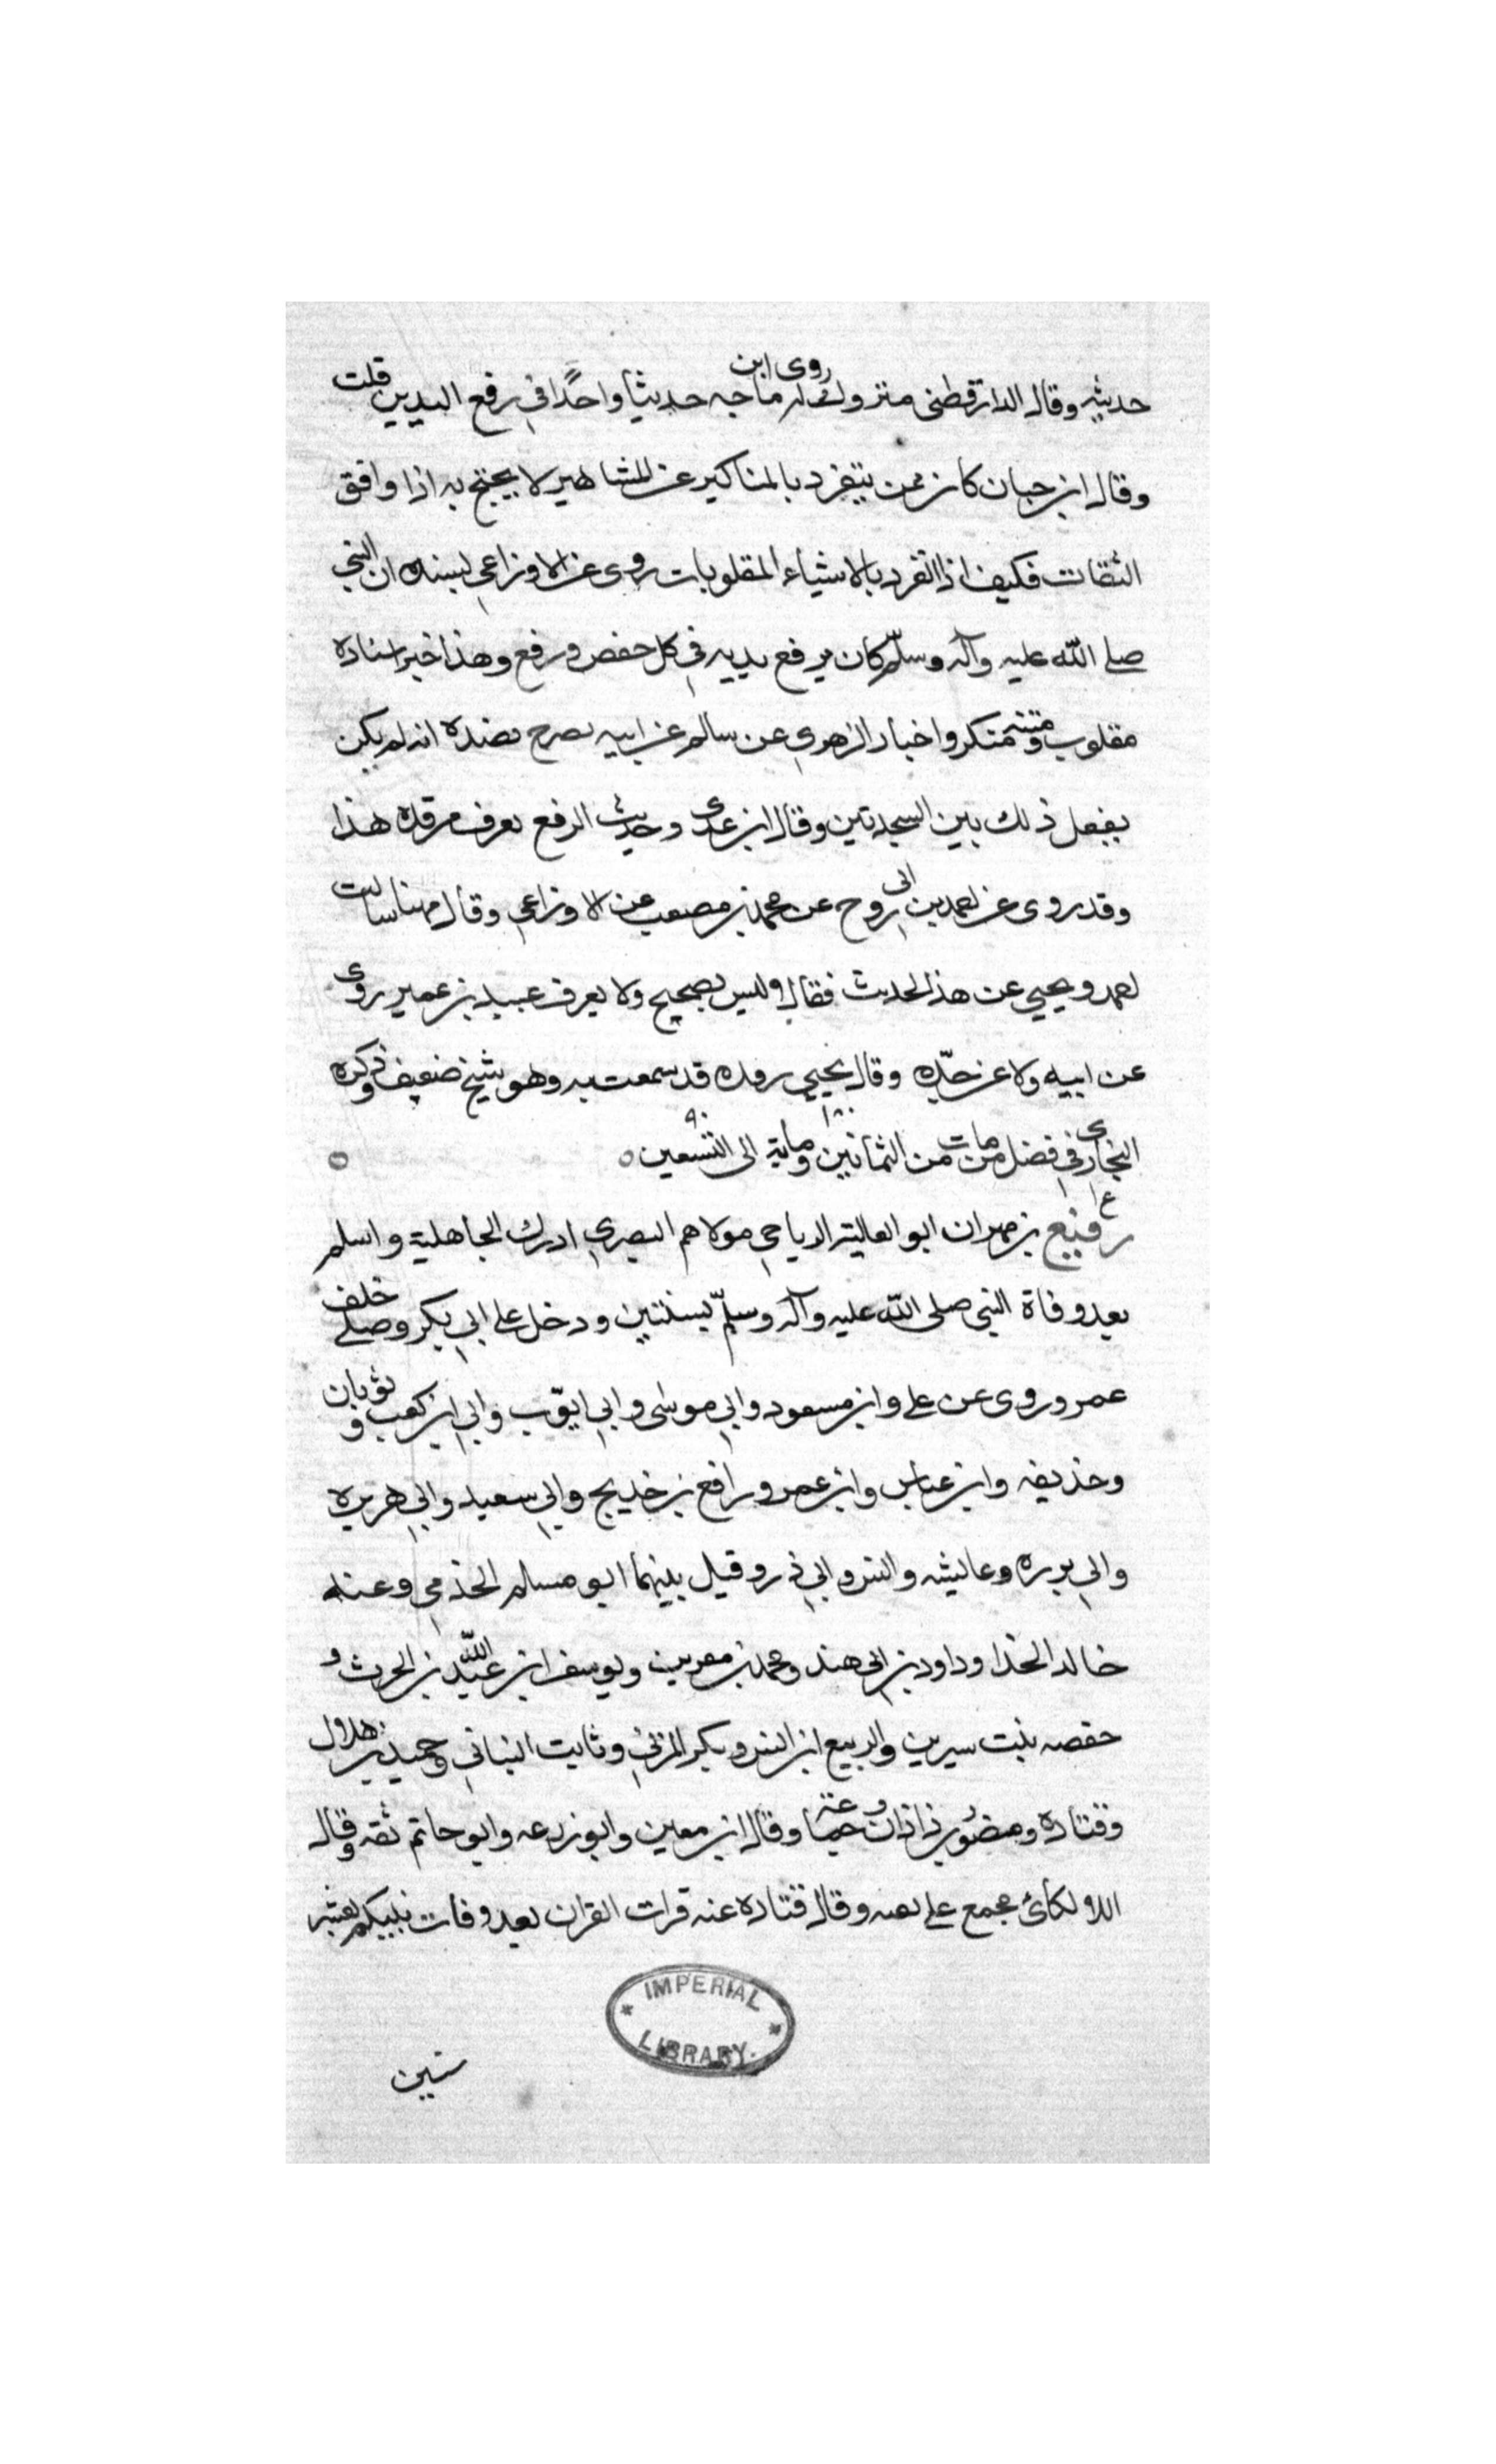 حديثه وقال الدارقطنى متروك له روى ابن ماجه حديثا واحدًا في رفع اليدين قلت
وقال ابن حبان كان ممن يتفرد بالمناكير عن المشاهير لا يحتج به اذا وافق
الثقات فكيف اذا انفرد بالاشياء المقلوبات روى عن الاوزاعي بسنده ان النبي
صلے الله عليه وآله وسلّم كان يرفع يديه في كل خفض ورفع وهذا خبر اسناده
مقلوب ومتنه منكر واخبار الزهري عن سالم عن ابيه تصرح بضده انه لم يكن
يفعل ذلك بين السجدتين وقال ابن عدى وحديث الرفع يعرف برفده هذا
وقد روى عن احمد بن ابى روح عن محمد بن مصعب عن الاوزاعي وقال مهنا سالت
احمد ويحيي عن هذا الحديث فقالا وليس بصحيح ولا يعرف عبيد بن عمير روى
عن ابيه ولا عن جدّه وقال يحيي رفده قد سمعت به وهو شيخ ضعيف وذكره
البخاري في فضل من مات من الثمانين وماية ١٨٠ الى التسعين ٩٠
ع رفيع بن مهران ابو العالية الرياحي مولاهم البصري ادرك الجاهلية واسلم
بعد وفاة النبي صلى الله عليه وآله وسلّم بسنتين ودخل على ابي بكر وصلے خلف
عمر وروى عن علے وابن مسعود وابي موسى وابي ايوّب وابي ابن كعب وثوبان
وحذيفه وابن عباس وابن عمر ورافع بن خديج وابي سعيد وابي هريره
وابي برزه وعايشه وانس وابي ذر وقيل بينهما ابو مسلم الجذمي وعنه
خالد الحذا وداود بن ابي هند ومحمد بن سيرين ويوسف ابن عبد الله بن الحرث و
حفصه بنت سيرين والربيع ابن انس وبكر المزني وثابت البناني وحميد بن هلال
وقتاده ومنصور بن زاذان وعنه جميعا وقال ابن معين وابو زرعه وابو حاتم ثقه وقال
اللالكائ مجمع علے ثقته وقال قتاده عنه قرات القران بعد وفات نبيكم بعشر
IMPERIAL LIBRARY.
سنين